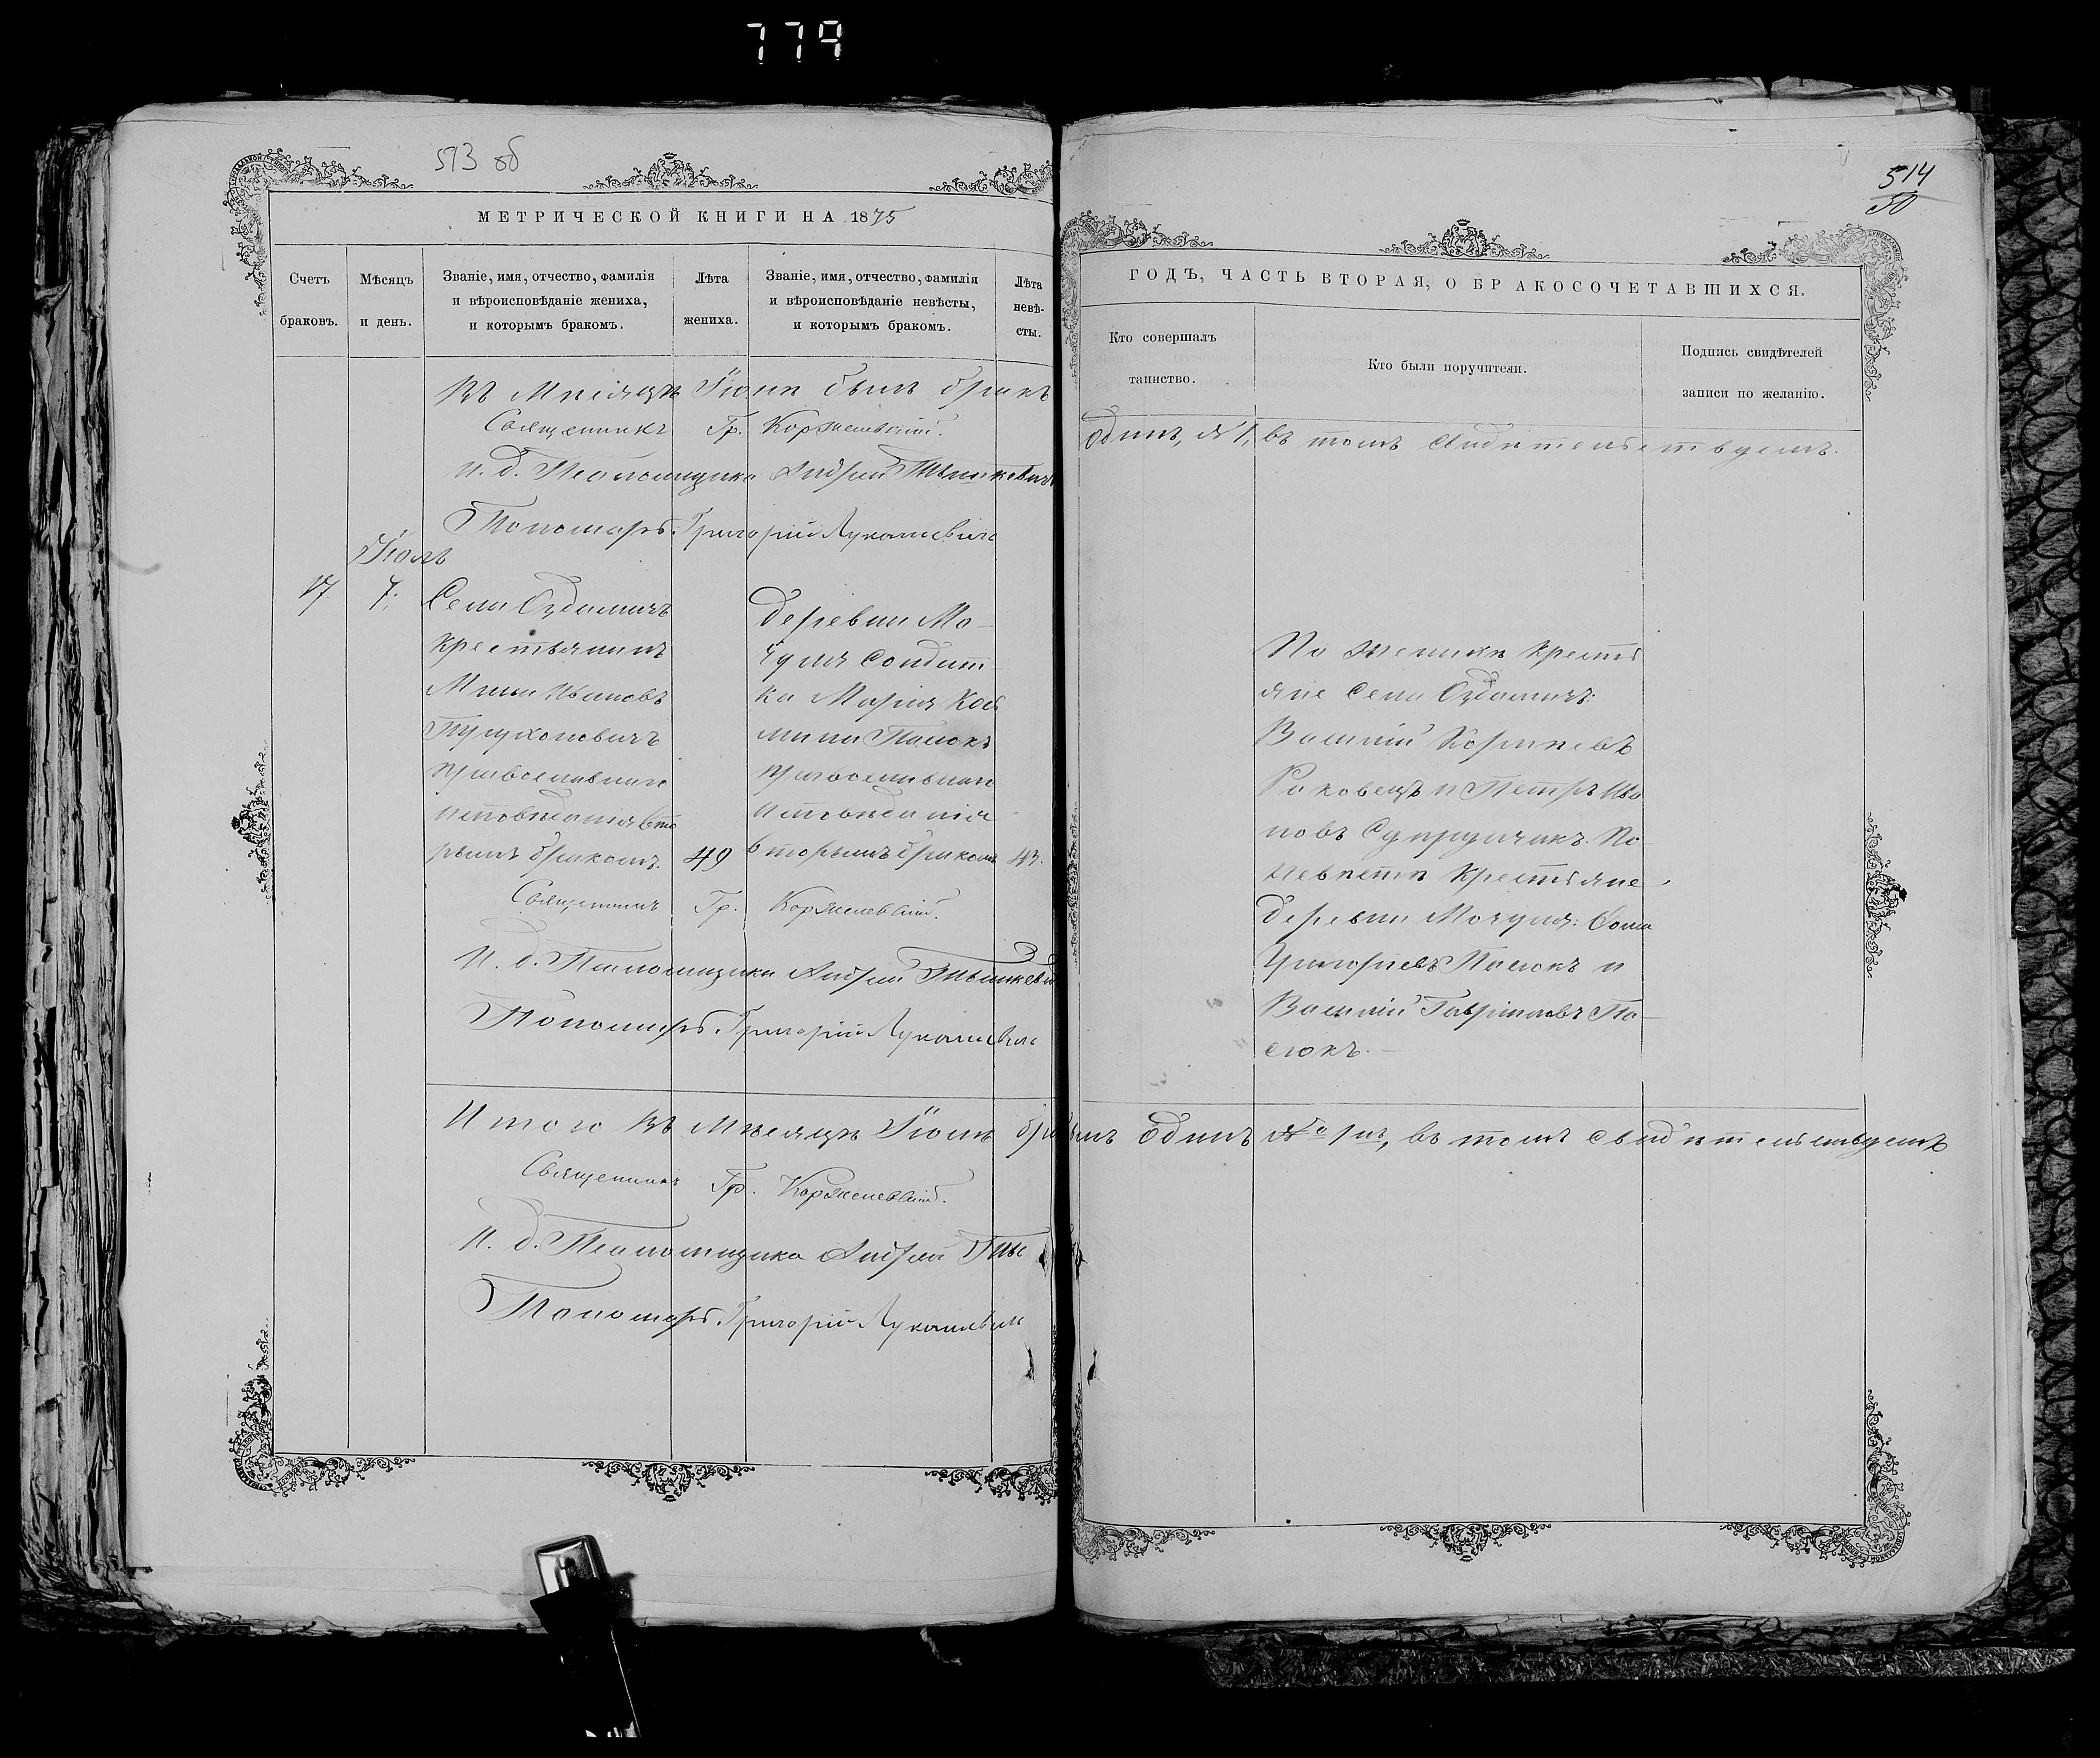 779
513 об
МЕТРИЧЕСКОЙ КНИГИ НА 1875
Счетъ браковъ.
Мѣсяцъ и день.
Званіе, имя, отчество, фамилія
и вѣроисповѣданіе жениха,
и которымъ бракомъ.
Лѣта жениха.
Званіе, имя, отчество, фамилія
и вѣроисповѣданіе невѣсты,
и которымъ бракомъ.
Лѣта невѣ-
сты.
Въ Мѣсяцѣ Іюнѣ былъ бракъ
Священникъ Гр.
И. д. Псаломщика Андрей
Пономарь Григорій Лукашевичъ
Іюль
17 7.
Села Оздамичъ
крестьянинъ
Ивановъ
православнаго
исповѣданія вто
рымъ бракомъ. 49
деревни Мо-
чуля Солдат
ка Марія
православнаго
исповѣданія
вторымъ бракомъ 43.
Священникъ Гр.
И. д. Псаломщика Андрей
Пономарь Григорій Лукашевичъ
Итого въ Мѣсяцѣ Іюлѣ
Священникъ Гр.
И. д. Псаломщика Андрей
Пономарь Григорій Лукашевичъ
514
50
ГОДЪ, ЧАСТЬ ВТОРАЯ, О БРАКОСОЧЕТАВШИХСЯ.
Кто совершалъ
таинство.
Кто были поручители.
Подпись свидѣтелей
записи по желанію.
одинъ, №1, въ томъ свидѣтельствуемъ.
По женихѣ кресть
яне Села Оздамичъ:
Василій
Раковецъ и Петръ Ива
новъ По
невѣстѣ крестьяне
деревни Мочуля:
Григорьевъ Пасюкъ и
Василій Гавріиловъ Па-
сюкъ.
одинъ № 1й, въ томъ свидѣтельствуемъ